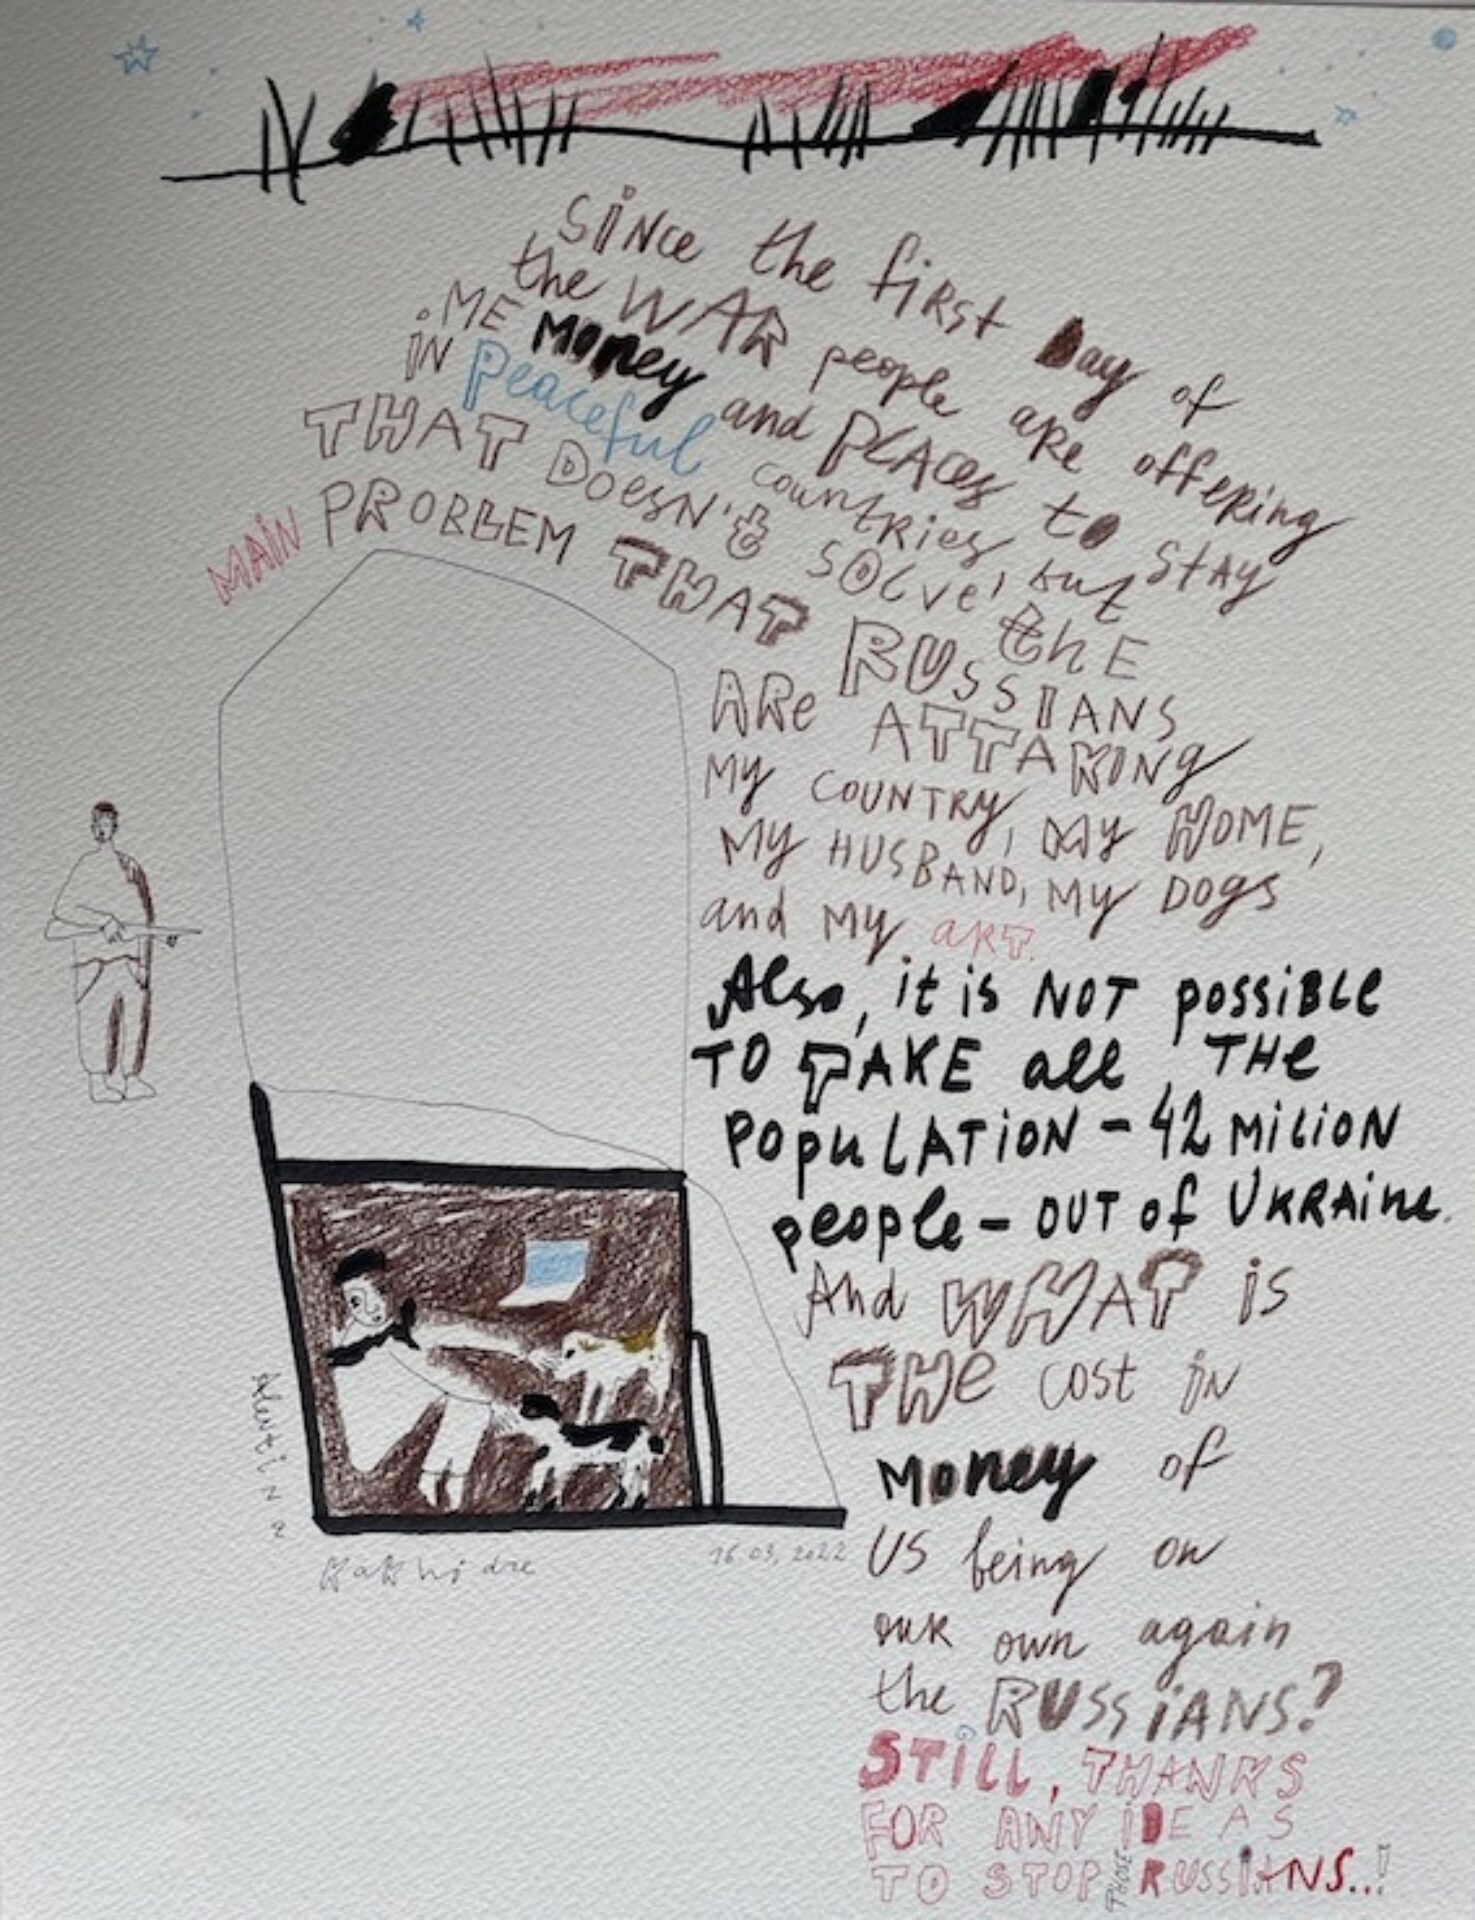 SiNce the fiRst Day of
the WAR people aRe offeRing
ME MoNey and PLAces to StAy
iN Peaceful countRies, but
THAT DoesN't SOLve the
MAiN PROBLEM THAT RUSSIANS
ARe ATTAKiNg
My COUNTRy, My HOME,
My HUSBAND, My DOgS
and My aRT.
Also, it is NOT possiBLe
TO TAKE all THe
POPuLATiON - 42 MiLiON
people - OUT of UKRAine.
And WHAT is
THe cost iN
MoNey of
US being on
ouR own again
the RUSSiANS?
STiLL, THANKS
FOR ANY iDEAS
TO STOP THOSE RUSSiANS..!
Alevtina
Kakhidze
16.03.2022